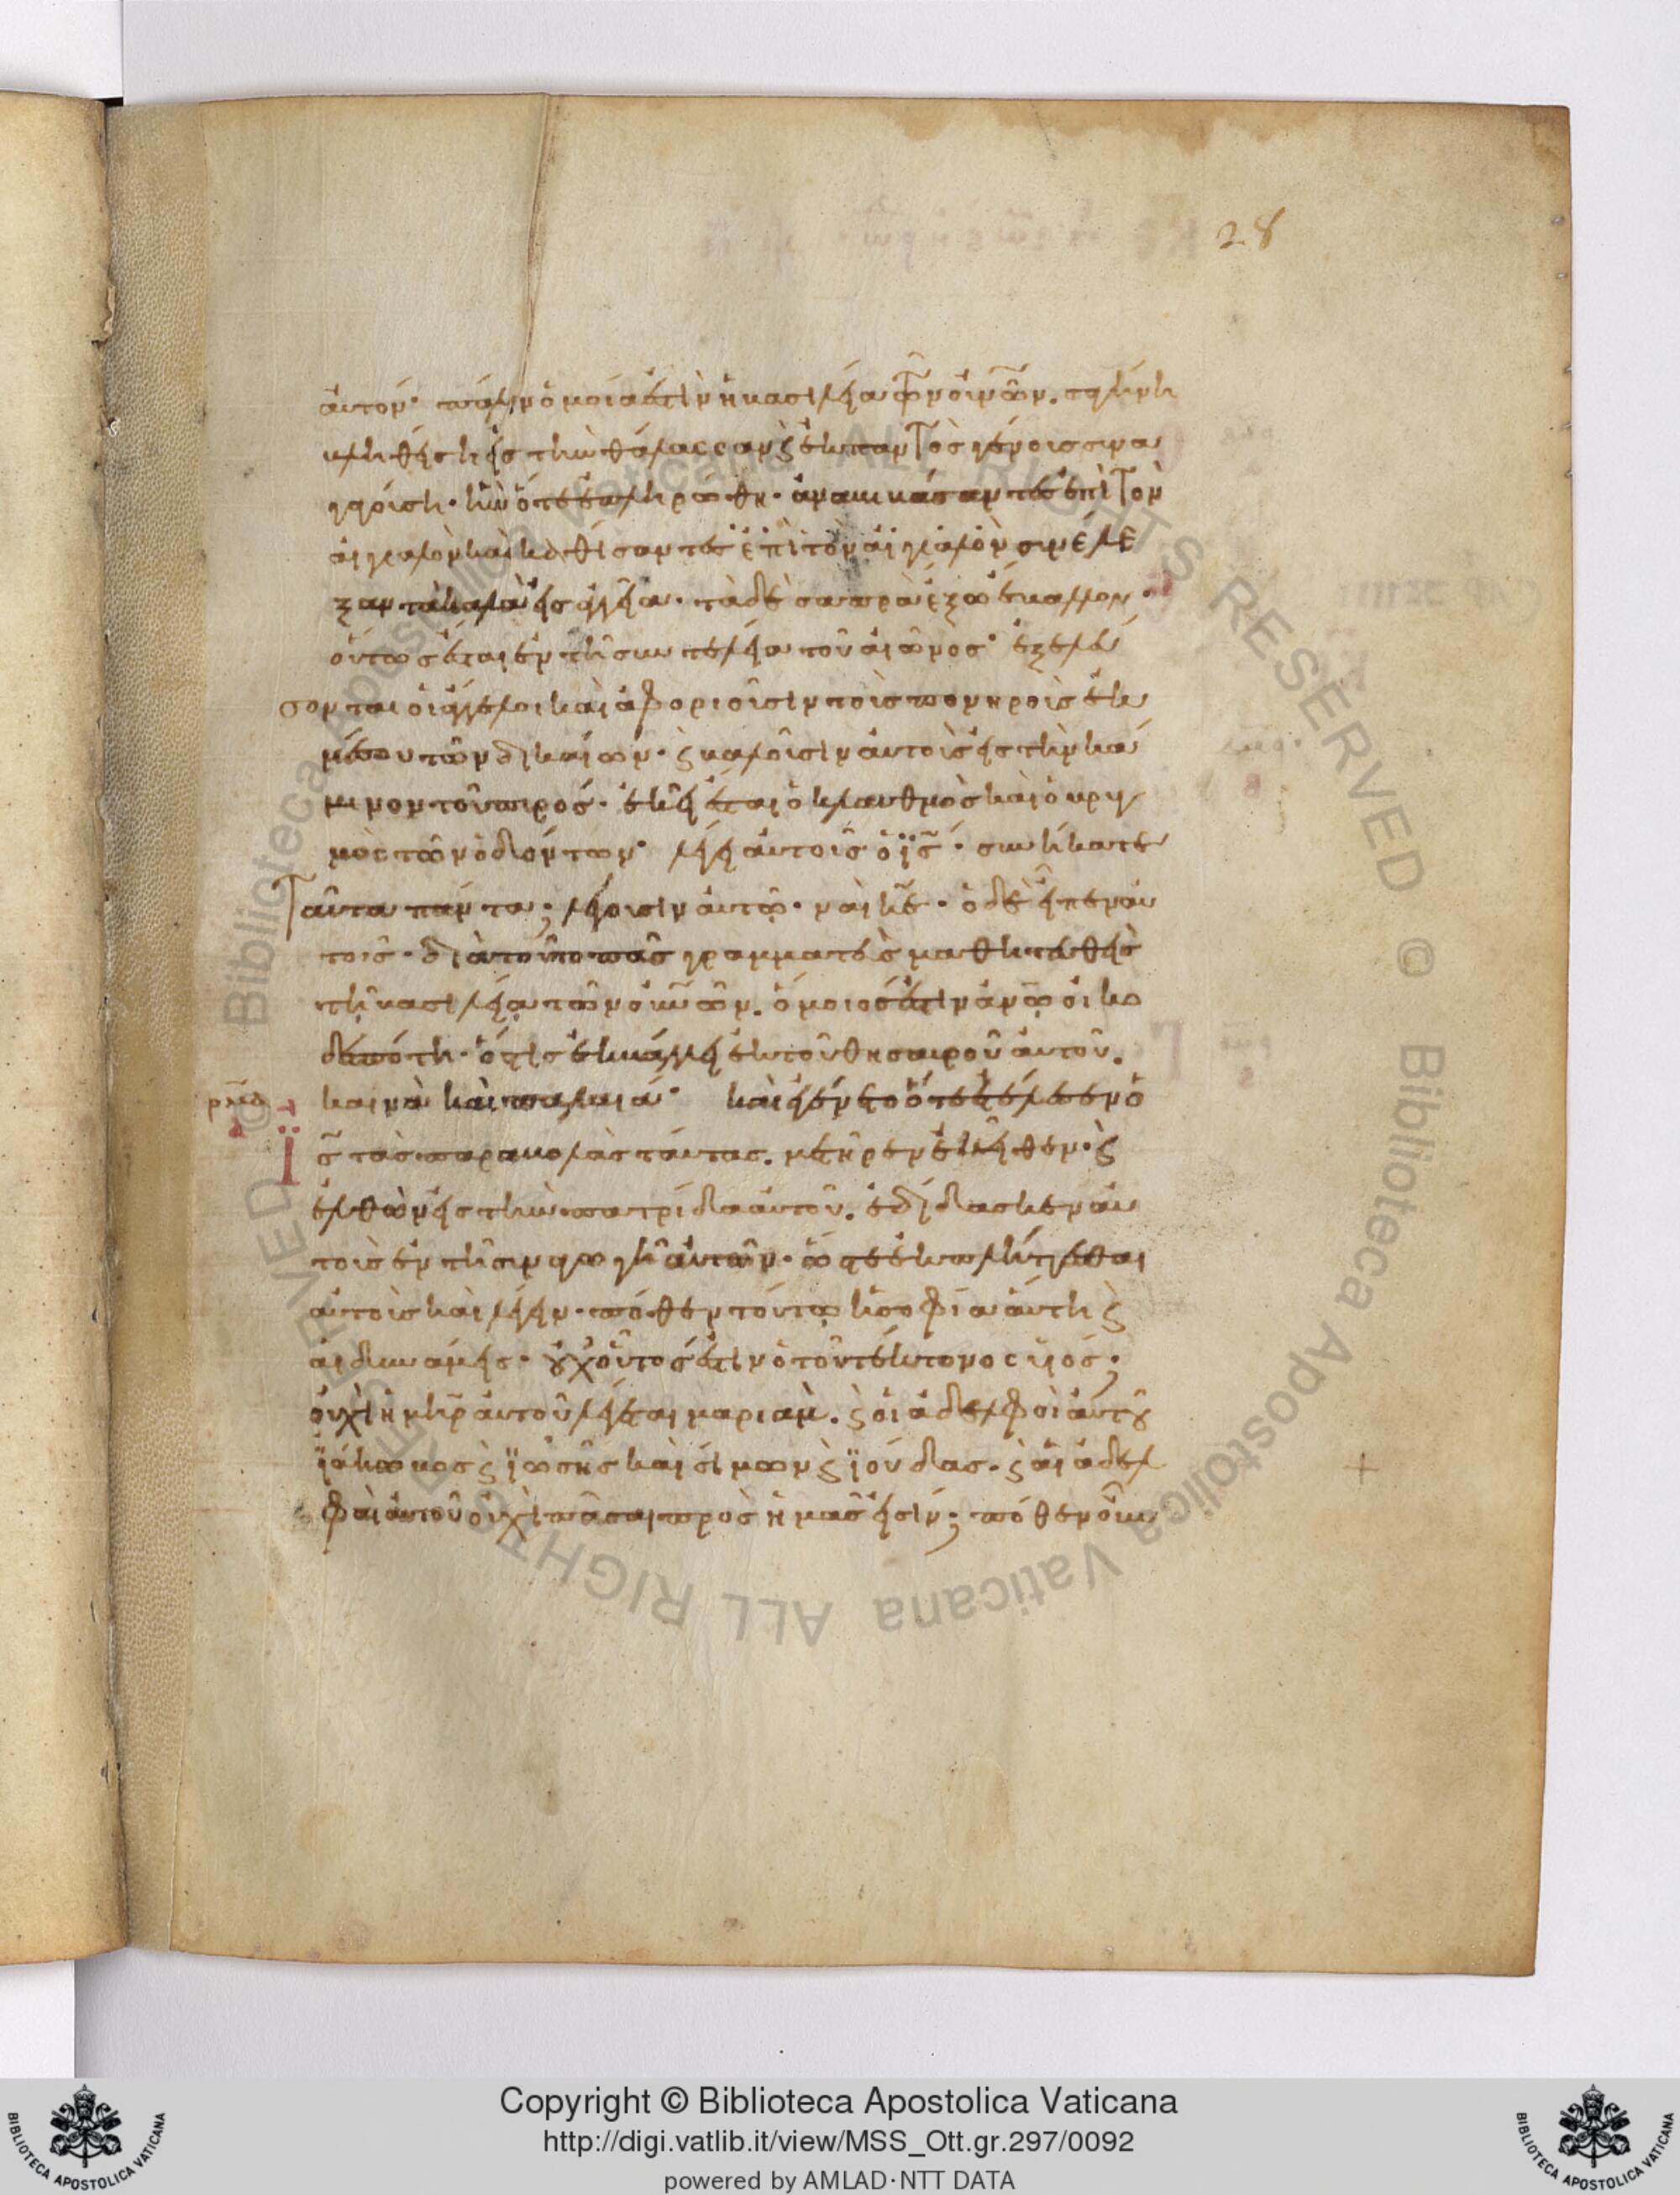 28
ἀυτόν· πάλιν ὁμοία ἐστὶν ἡ βασιλεία τῶν οὐνῶν. σαγήνη
βληθείση εἰς τὴν θάλασσαν ς ἐκ παντὸς γένους συνα
γαγούση· ἣν ὅτε ἐπληρώθη· ἀναβιβάσαντες ἐπὶ τὸν
αἰγιαλὸν καὶ καθίσαντες ἐπὶ τὸν αἰγιαλὸν συνέλε
ξαν τὰ καλὰ εἰς ἀγγεῖα· τὰ δὲ σαπρὰ ἔξω ἔβαλλον·
οὕτως ἔσται ἐν τῆ συντελεία τοῦ αἰῶνος· ἐξελεύ
σονται οἱ ἄγγελοι καὶ ἀφοριοῦσιν τοὺς πονηροὺς ἐκ
μέσου τῶν δικαίων· ς βαλοῦσιν ἀυτοὺς εἰς τὴν κά
μινον τοῦ πυρός· ἐκεῖ ἔσται ὁ κλαυθμὸς καὶ ὁ βρυγ
μὸς τῶν ὀδόντων· λέγει ἀυτοῖς ὁ ϊς· συνήκατε
ταῦτα πάντα; λέγουσιν ἀυτῷ· ναὶ κε· ὁ δὲ εἶπεν ἀυ
τοῖς· διὰ τοῦτο πᾶς γραμματεὺς μαθητευθεὶς
τῇ βασιλείᾳ τῶν οὐνῶν. ὅμοιος ἐστὶν ἀνῷ οἰκο
δεσπότη· ὅστις ἐκβάλλει ἐκ τοῦ θησαυροῦ ἀυτοῦ.
καινὰ καὶ παλαιά· καὶ ἐγένετο ὅτε ἐτέλεσεν ὁ
ϊς τὰς παραβολὰς ταύτας. μετῆρεν ἐκεῖθεν· ς
ἐλθὼν εἰς τὴν πατρίδα ἀυτοῦ. ἐδίδασκεν ἀυ
τοὺς ἐν τῆ συναγωγῆ ἀυτῶν· ὥστε ἐκπλήττεσθαι
ἀυτοὺς καὶ λέγειν· πόθεν τούτῳ ἡ σοφία ἀύτη ς
αἱ δυνάμεις· οὐχ οὗτος ἐστὶν ὁ τοῦ τέκτονος υἱός;
οὐχὶ ἡ μηρ ἀυτοῦ λέγεται μαριὰμ. ς οἱ ἀδελφοὶ ἀυτοῦ
ϊάκωβος ς ϊωσῆς καὶ σίμων ς ϊούδας. ς αἱ ἀδελ
φαὶ ἀυτοῦ οὐχὶ πᾶσαι πρὸς ἡμᾶς εἰσίν; πόθεν οὖν
Copyright © Biblioteca Apostolica Vaticana
http://digi.vatlib.it/view/MSS_Ott.gr.297/0092
powered by AMLAD·NTT DATA
BIBLIOTECA APOSTOLICA VATICANA
BIBLIOTECA APOSTOLICA VATICANA
© Biblioteca Apostolica Vaticana ALL RIGHTS RESERVED © Biblioteca Apostolica Vaticana ALL RIGHTS RESERVED